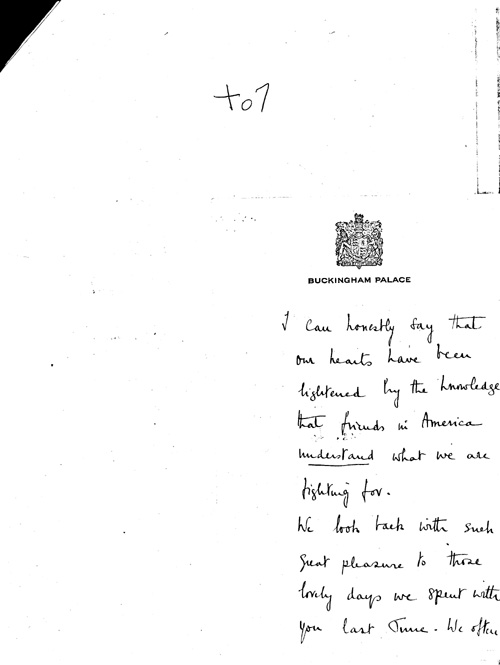 to7
BUCKINGHAM PALACE
I can honestly say that
our hearts have been
lightened by the knowledge
that friends in America
understand what we are
fighting for.
We look back with such
great pleasure to those
lovely days we spent with
you last June. We often